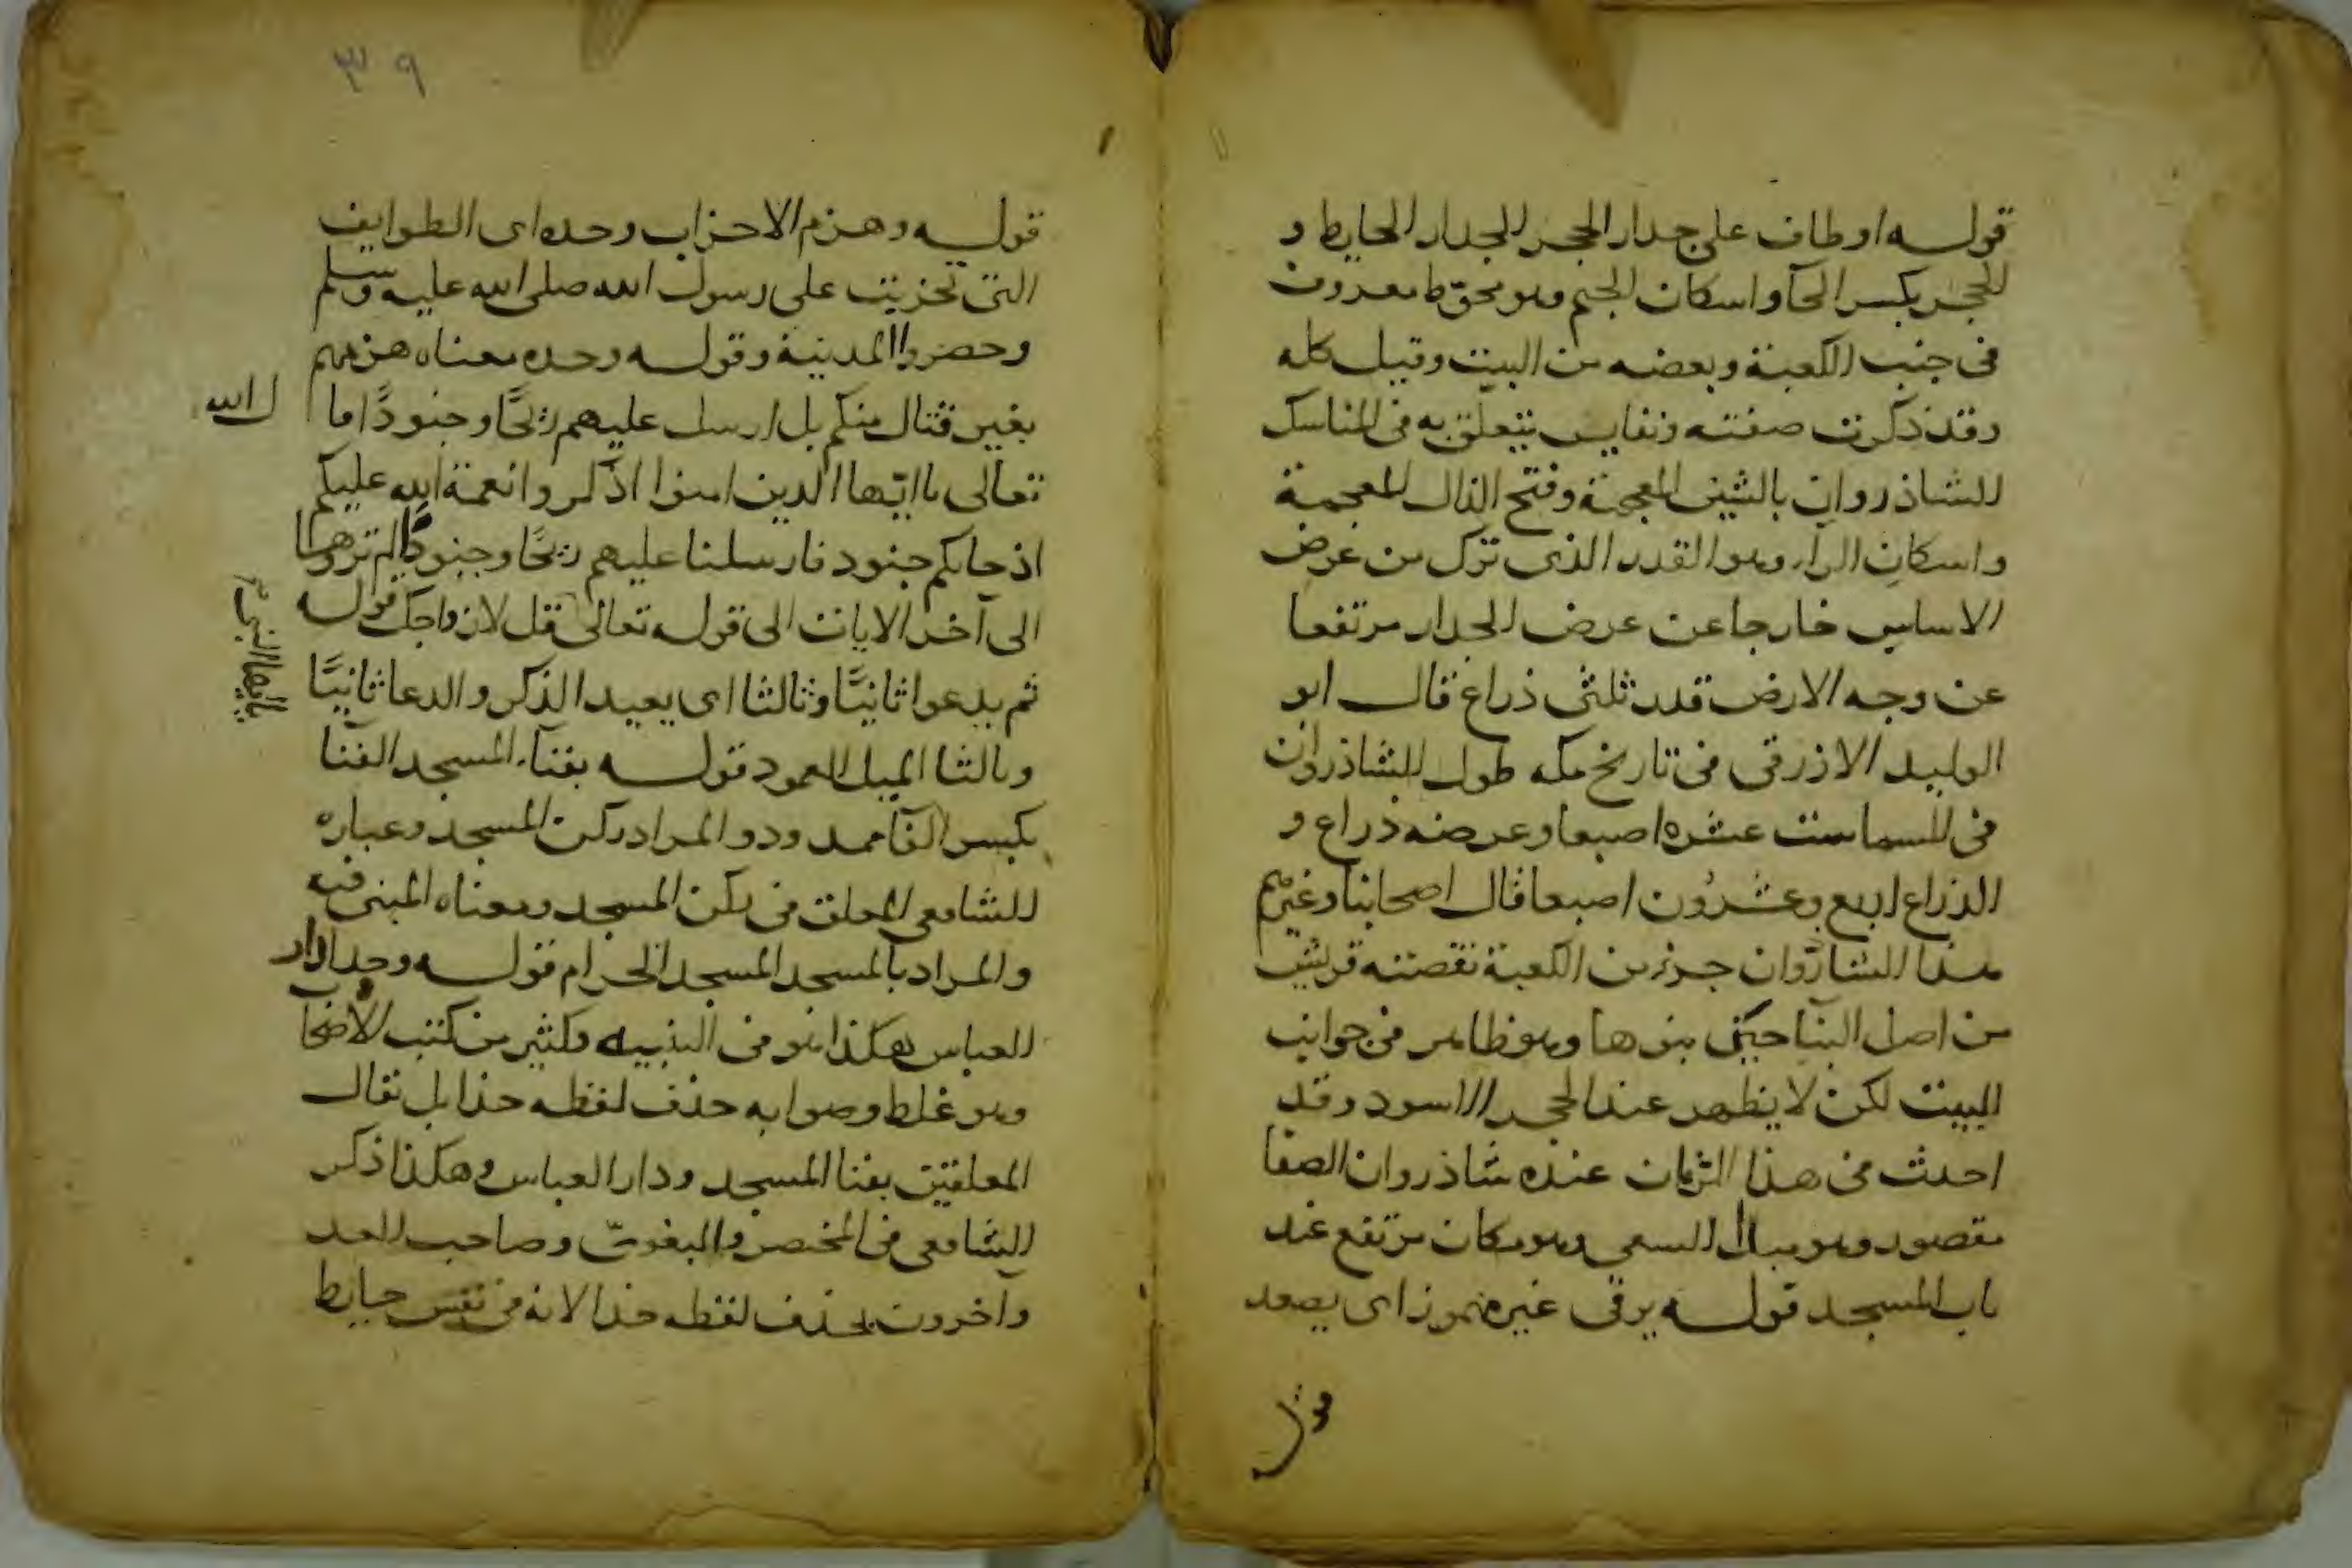 قوله او طاف على جدار الحجر الجدار الحايط و
الحجر بكسر الحآ واسكان الجيم وهو محوّط معروف
فى جنب الكعبة وبعضه من البيت وقيل كله
وقد ذكرت صفته ونفايس يتعلق به فى المناسك
الشاذروان بالشين المعجمة وفتح الذال المعجمة
واسكان الرآء وهو القدر الذى ترك من عرض
الاساس خارجا عن عرض الجدار مرتفعا
عن وجه الارض قدر ثلثى ذراع قال ابو
الوليد الازرقى فى تاريخ مكه طول الشاذروان
فى السما ست عشره اصبعا وعرضه ذراع و
الذراع اربع وعشرون اصبعا قال اصحابنا وغيرهم
هذا الشاذروان جزء من الكعبة نقصته قريش
من اصل البنآ حين بنوها وهو ظاهر فى جوانب
البيت لكن لا يظهر عند الحجر الاسود وقد
احدث فى هذا الزمان عنده شاذروان الصفا
مقصور وهو مبدا السعى وهو مكان مرتفع عند
باب المسجد قوله يرقى غير مهموز اى يصعد
قوله وهزم الاحزاب وحده اى الطوايف
التى تحزبت على رسول الله صلى الله عليه وسلم
وحضروا المدينة وقوله وحده معناه هزمهم
بغير قتال منكم بل ارسل عليهم ريحًا وجنودًا اما
ل الله
تعالى ياايّها الذين امنوا اذكروا نعمة الله عليكم
اذ جاتكم جنود فارسلنا عليهم ريحًا وجنودًا لم تروها
الى آخر الايات الى قوله تعالى قل لازواجك قوله
ياايها النبى
ثم يدعوا ثانيًا وثالثا اى يعيد الذكر والدعا ثانيًا
وثالثا الميل العمود قوله بفنآء المسجد الفنا
بكسر الفآ ممدود والمراد ركن المسجد وعباره
الشافعى المعلق فى ركن المسجد ومعناه المبنى فيه
والمراد بالمسجد المسجد الحرام قوله وحدا دار
العباس هكذا هو فى التنبيه وكثير من كتب الاصحاب
وهو غلط وصوابه حذف لفظه حذا بل يقال
المعلقين بفنا المسجد ودار العباس وهكذا ذكر
الشافعى فى المختصر والبغوىّ وصاحب العد
وآخرون بحذف لفظه حذا لانه فى نفس حايط